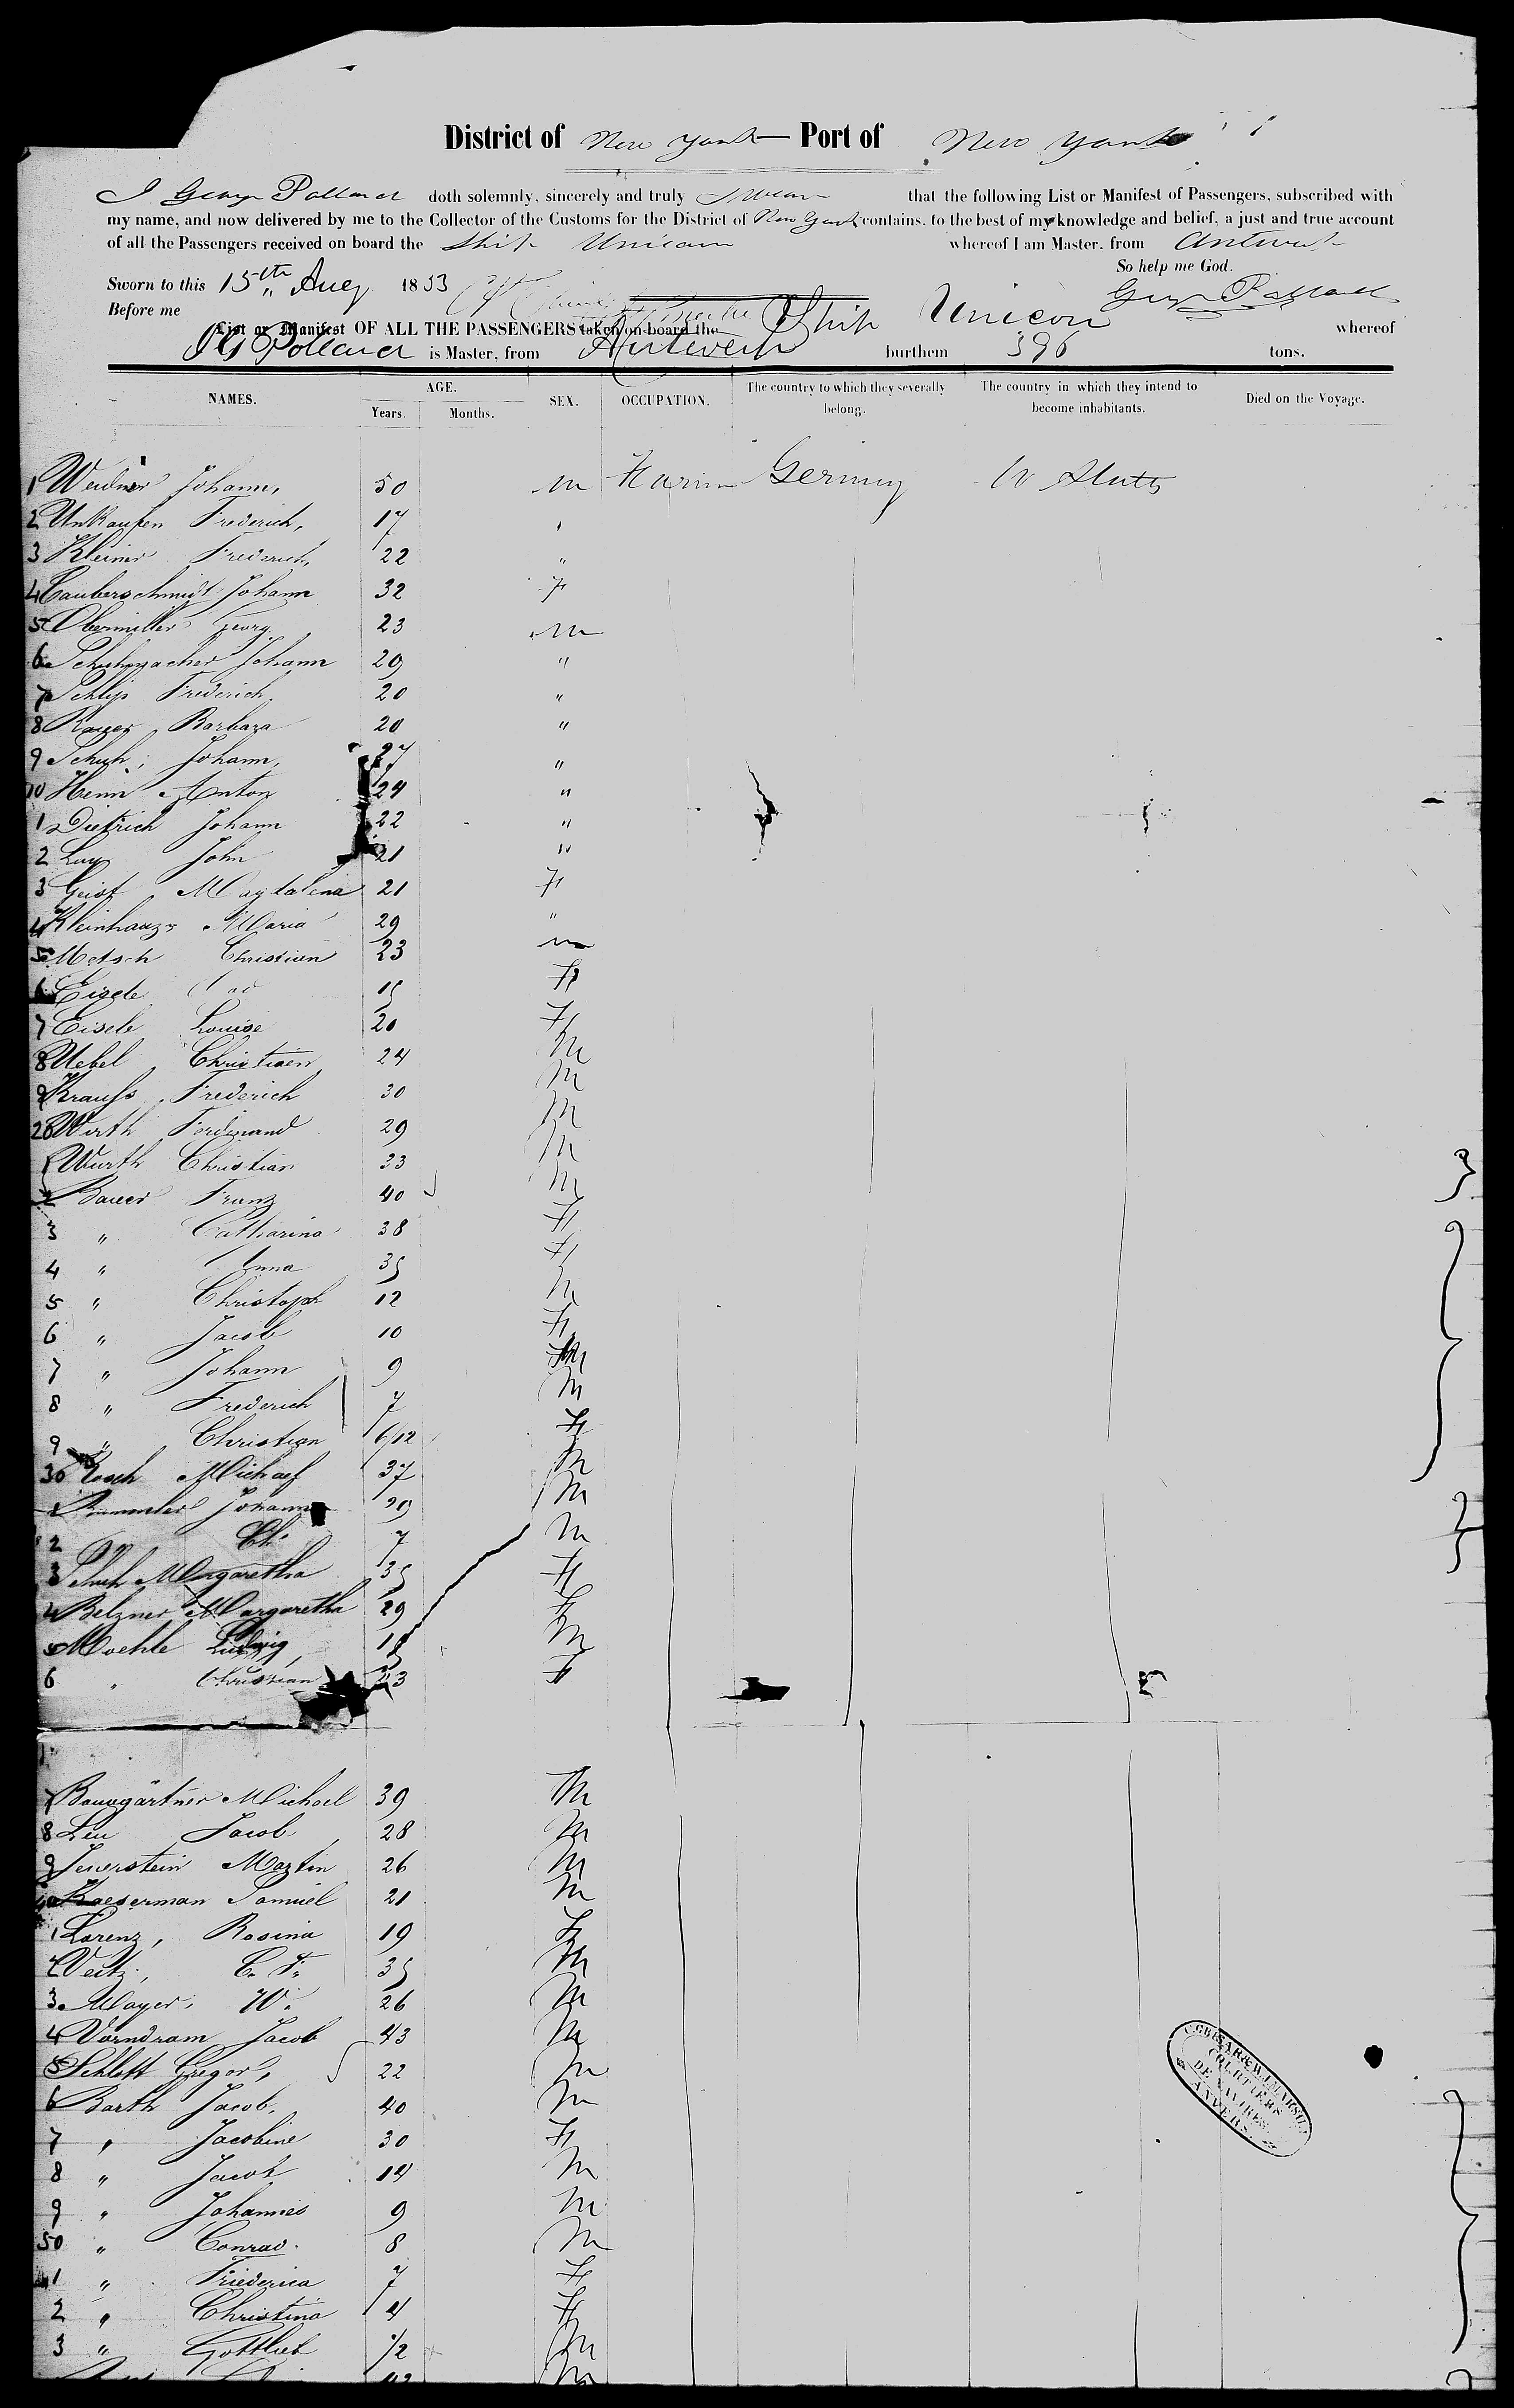 District of New York Port of New York
I George Pollard doth solemnly, sincerely and truly swear that the following List or Manifest of Passengers, subscribed with
my name, and now delivered by me to the Collector of the Customs for the District of New York contains, to the best of my knowledge and belief, a just and true account
of all the Passengers received on board the Ship Unicorn whereof I am Master, from Antwerp
So help me God.
Sworn to this 15th Aug 1853
George Pollard
Before me
List or Manifest OF ALL THE PASSENGERS taken on board the Ship Unicorn whereof
G Pollard is Master, from Antwerp burthem 396 tons.
NAMES. AGE. Years. Months. SEX. OCCUPATION. The country to which they severally belong. The country in which they intend to become inhabitants. Died on the Voyage.
1 Weidner Johann, 50 m Farmer Germany U States
2 Unkaufen Frederich, 17 "
3 Kleiner Frederich, 22 "
4 Johann 32 F
5 Obermiller Georg 23 m
6 Schuhmacher Johann 29 "
7 Frederich 20 "
8 Barbara 20 "
9 Schuh, Johann, 27 "
10 Henn Anton 24 "
1 Dietrich Johann 22 "
2 Luy John 21 "
3 Geist, Magdalena 21 F
4 Kleinhanz Maria 29 "
5 Metsch Christian 23 m
6 Eisele 15 F
7 Eisele Louise 20 F
8 Uebel Christian 24 M
9 Krauss, Frederich 30 M
20 Wirth Ferdinand 29 M
1 Wurth Christian 33 M
2 Bauer Franz 40 M
3 " Catharina 38 F
4 " Anna 35 F
5 " Christoph 12 M
6 " Jacob 10 F
7 " Johann 9 M
8 " Frederich 7 M
9 " Christian 6/12 F
30 Rosch Michael 37 M
1 Johann 29 M
2 " Ch. 7 M
3 Schuh Margaretha 35 F
4 Belzner Margaretha 29 F
5 Moehle Ludwig, M
6 " Christian 23 F
7 Baumgärtner Michael 39 M
8 Leu Jacob 28 M
9 Martin 26 M
40 Kaeserman Samuel 21 M
1 Lorenz, Rosina 19 F
2 Veitz, C. F. 35 M
3 Mayer, W. 26 M
4 Vorndram Jacob 43 M
5 Schlott Gregor, 22 M
6 Barth Jacob, 40 M
7 " Jacobine 30 F
8 " Jacob 14 M
9 " Johannes 9 M
50 " Conrad 8 M
1 " Friederica 7 F
2 " Christina 4 F
3 " Gottlieb 1/2 M
COURTIERS
DE NAVIRES
ANVERS